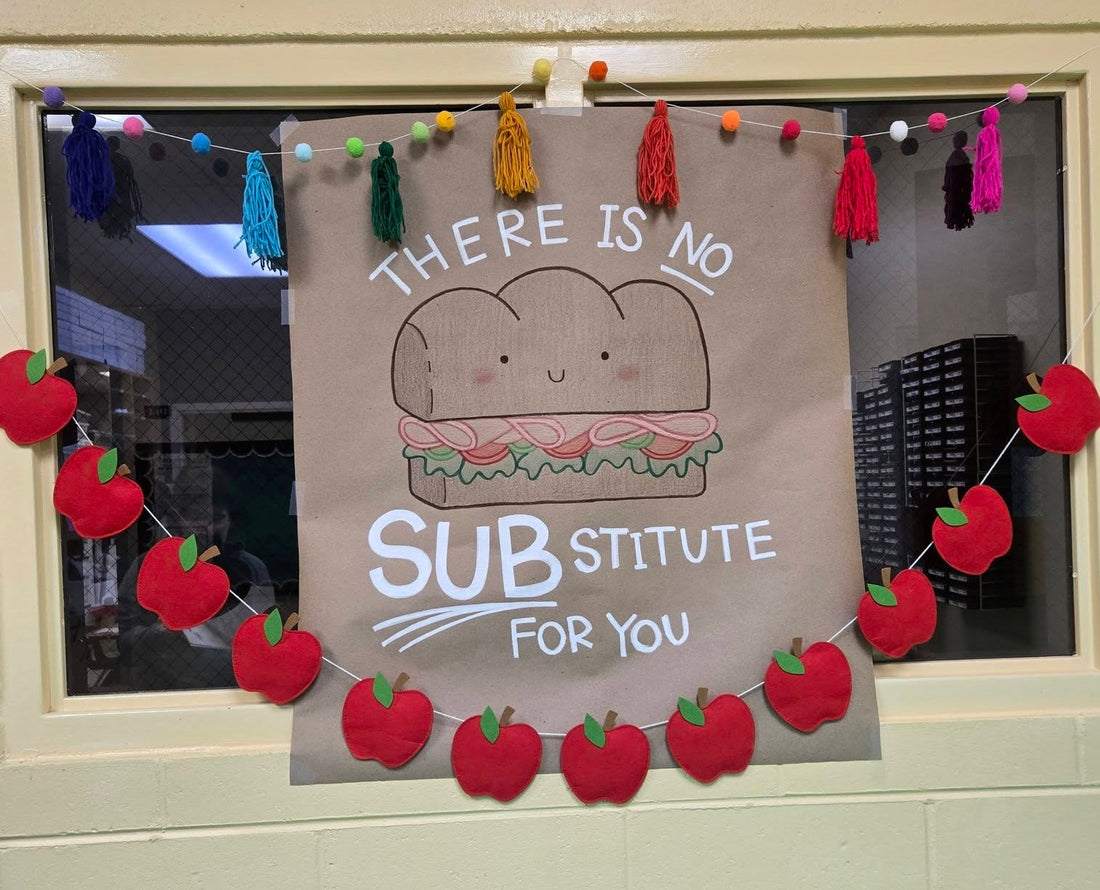 THERE IS NO
SUBSTITUTE
FOR YOU